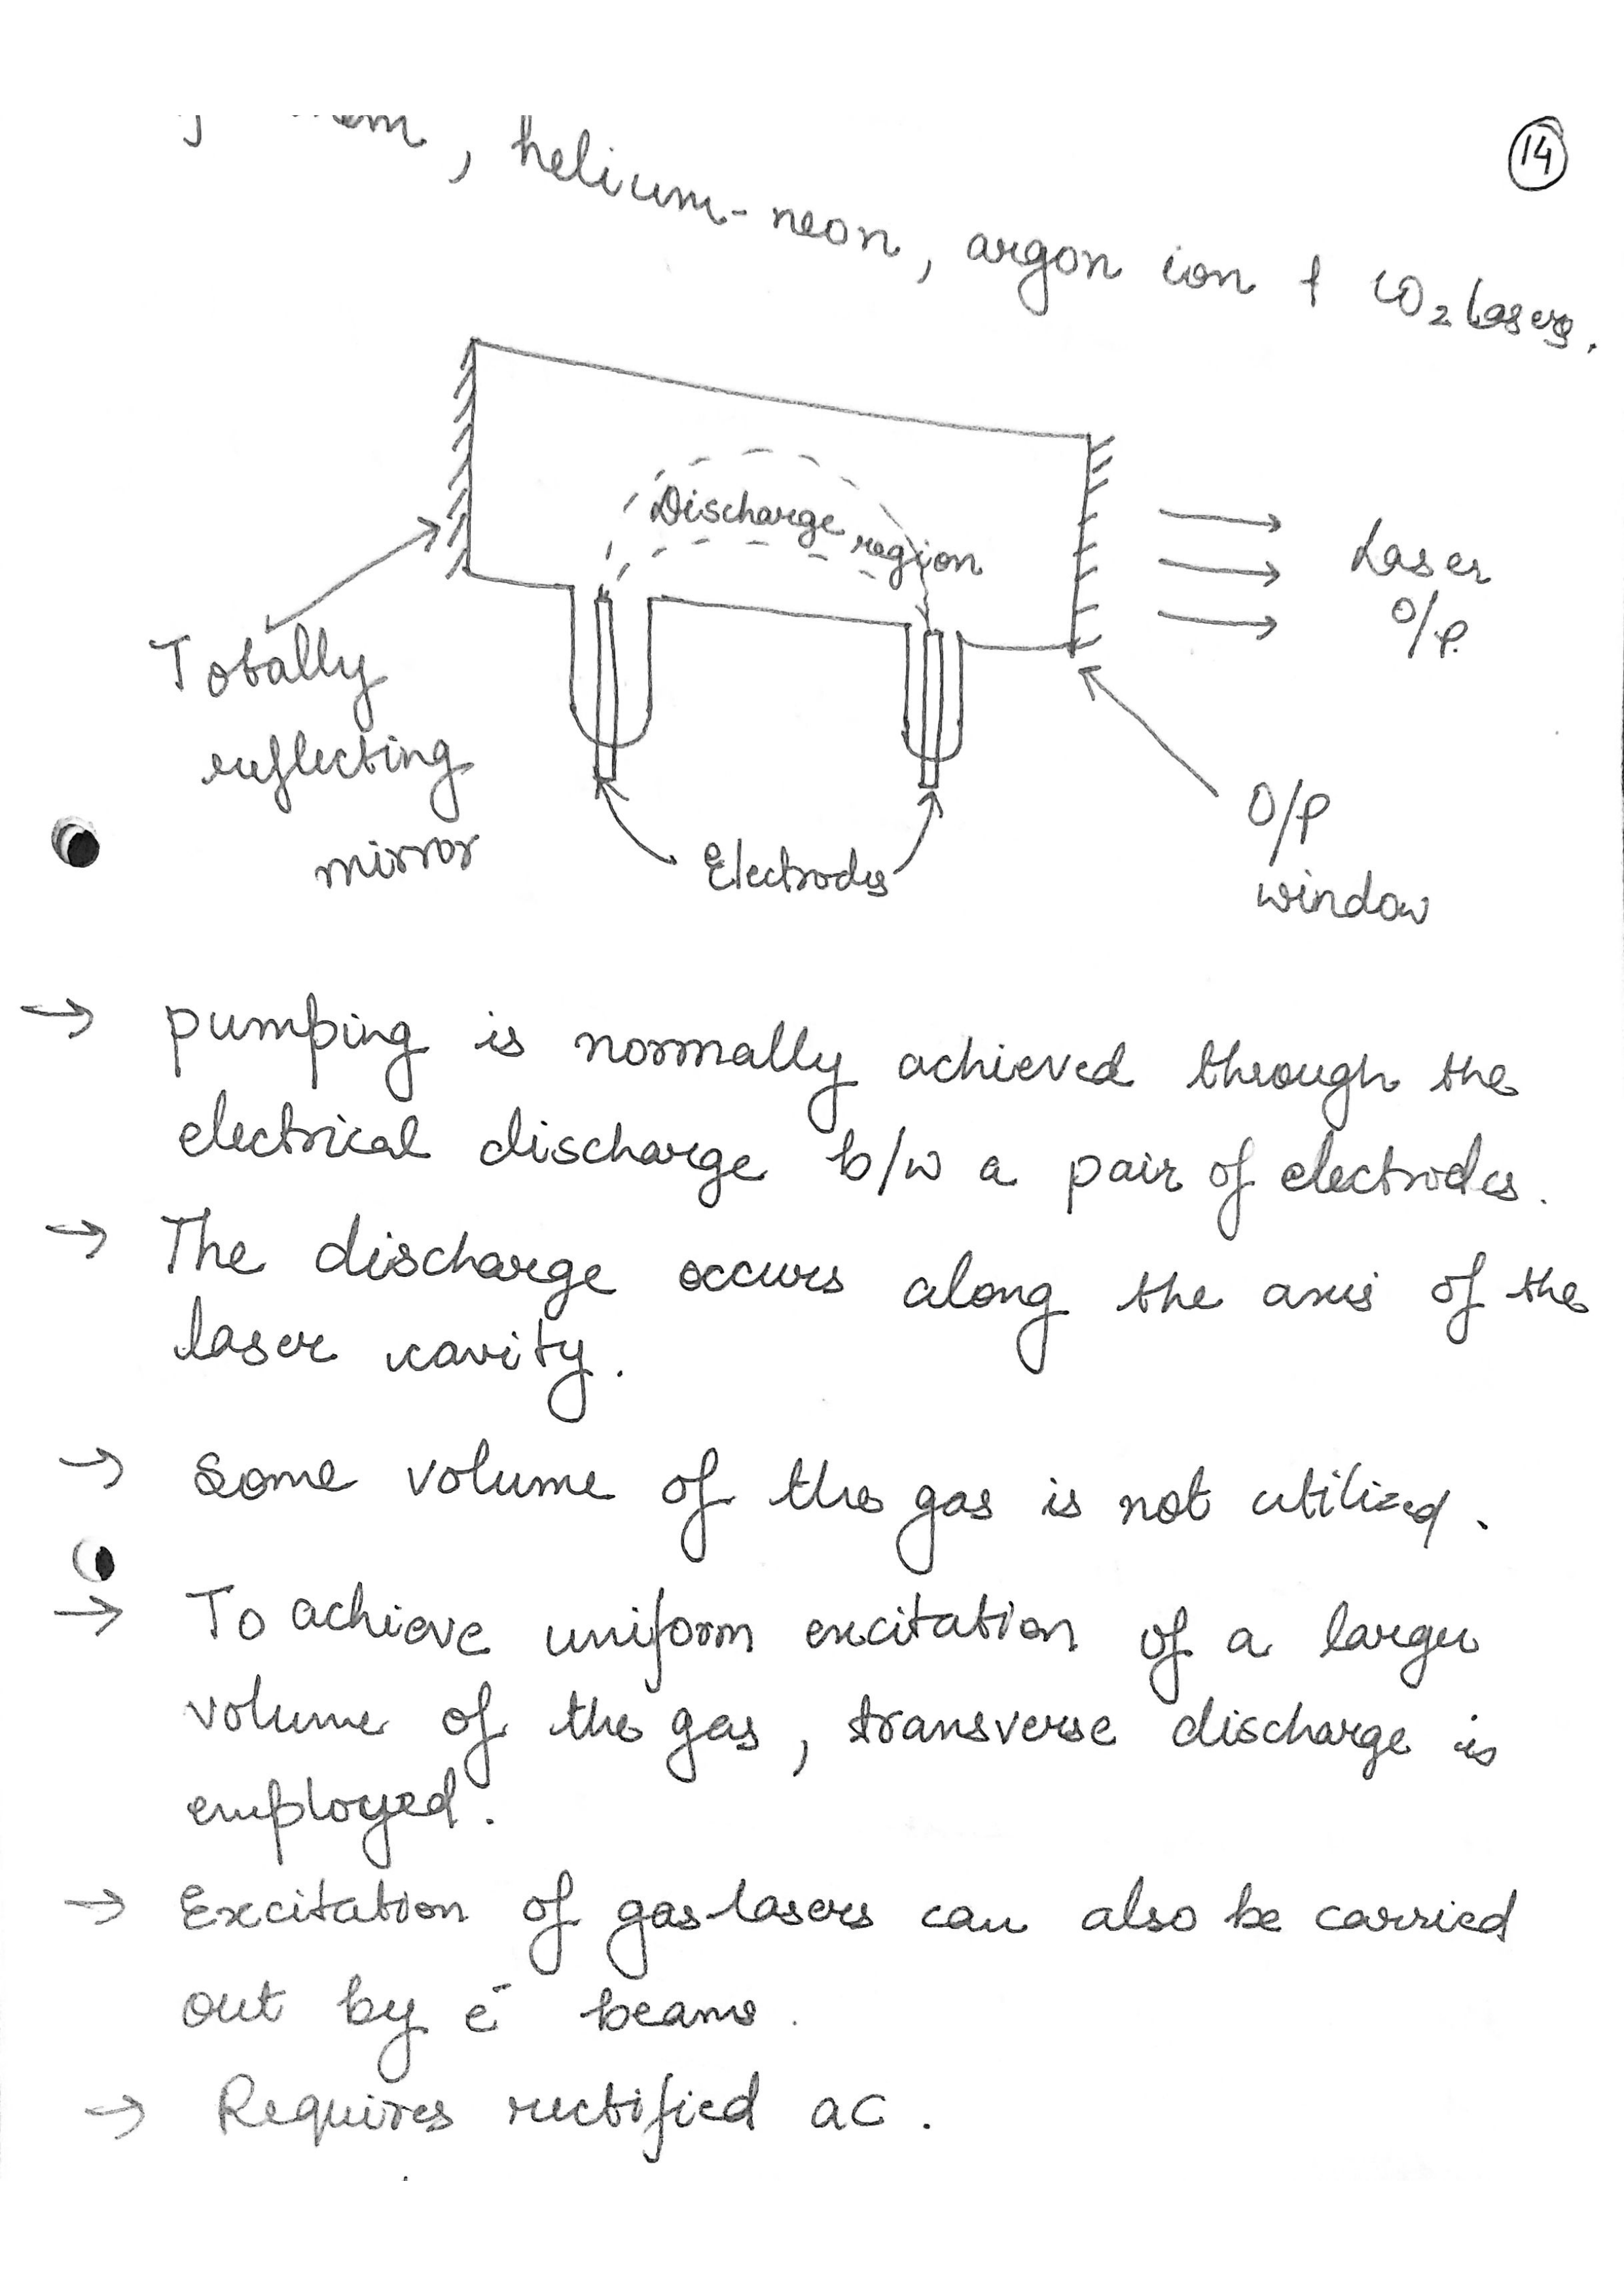 14
, helium-neon, argon ion & CO2 lasers.
Discharge region
Laser
O/P
Totally
reflecting
mirror
Electrodes
O/P
window
→ pumping is normally achieved through the
electrical discharge b/w a pair of electrodes.
→ The discharge occurs along the axis of the
laser cavity.
→ Some volume of the gas is not utilized.
→ To achieve uniform excitation of a larger
volume of the gas, transverse discharge is
employed.
→ Excitation of gas lasers can also be carried
out by e⁻ beams.
→ Requires rectified ac.